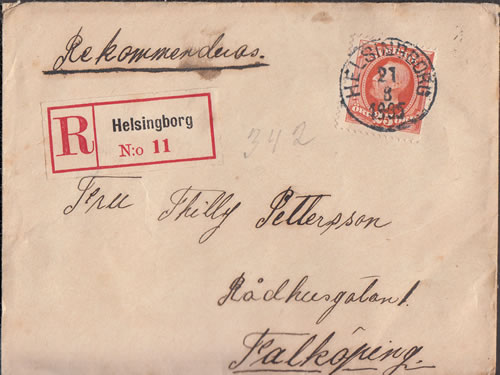 Rekommenderas.
HELSINGBORG
21
8
1895
R Helsingborg
N:o 11
342
Fru Thilly Pettersson
Rådhusgatan 1.
Falköping.